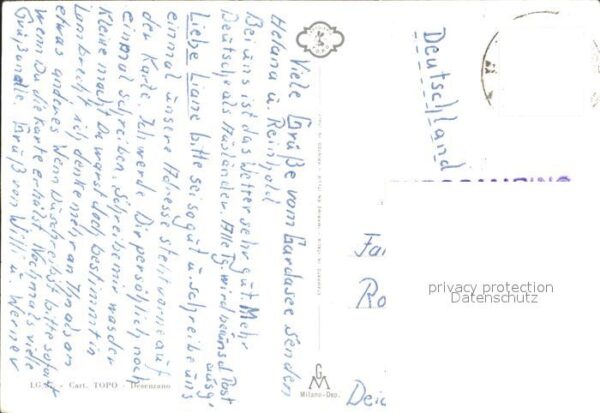 Viele Grüße vom Gardasee senden
Helana u. Reinhold
Bei uns ist das Wetter sehr gut. Mehr
Deutsche als Ausländer. Alle Tg. wird bei uns d Post
ausg.
Liebe Liane bitte sei so gut u. schreibe uns
einmal unsere Adresse steht vorne auf
der Karte. Ich werd Dir persöhlich noch
einmal schreiben. Schreibe mir was der
Kleine macht Du warst doch bestimmt in
ich denke mehr an als an
etwas anderes Wenn Du schreibst bitte sofort
wenn Du die Karte erhälst Nochmals viele
Grüß von Willi u. Werner
Deutschland
Fa
Ro
Deic
privacy protection
Datenschutz
LG. Cart. TOPO - Desenzano
GM
Milano-Dep.